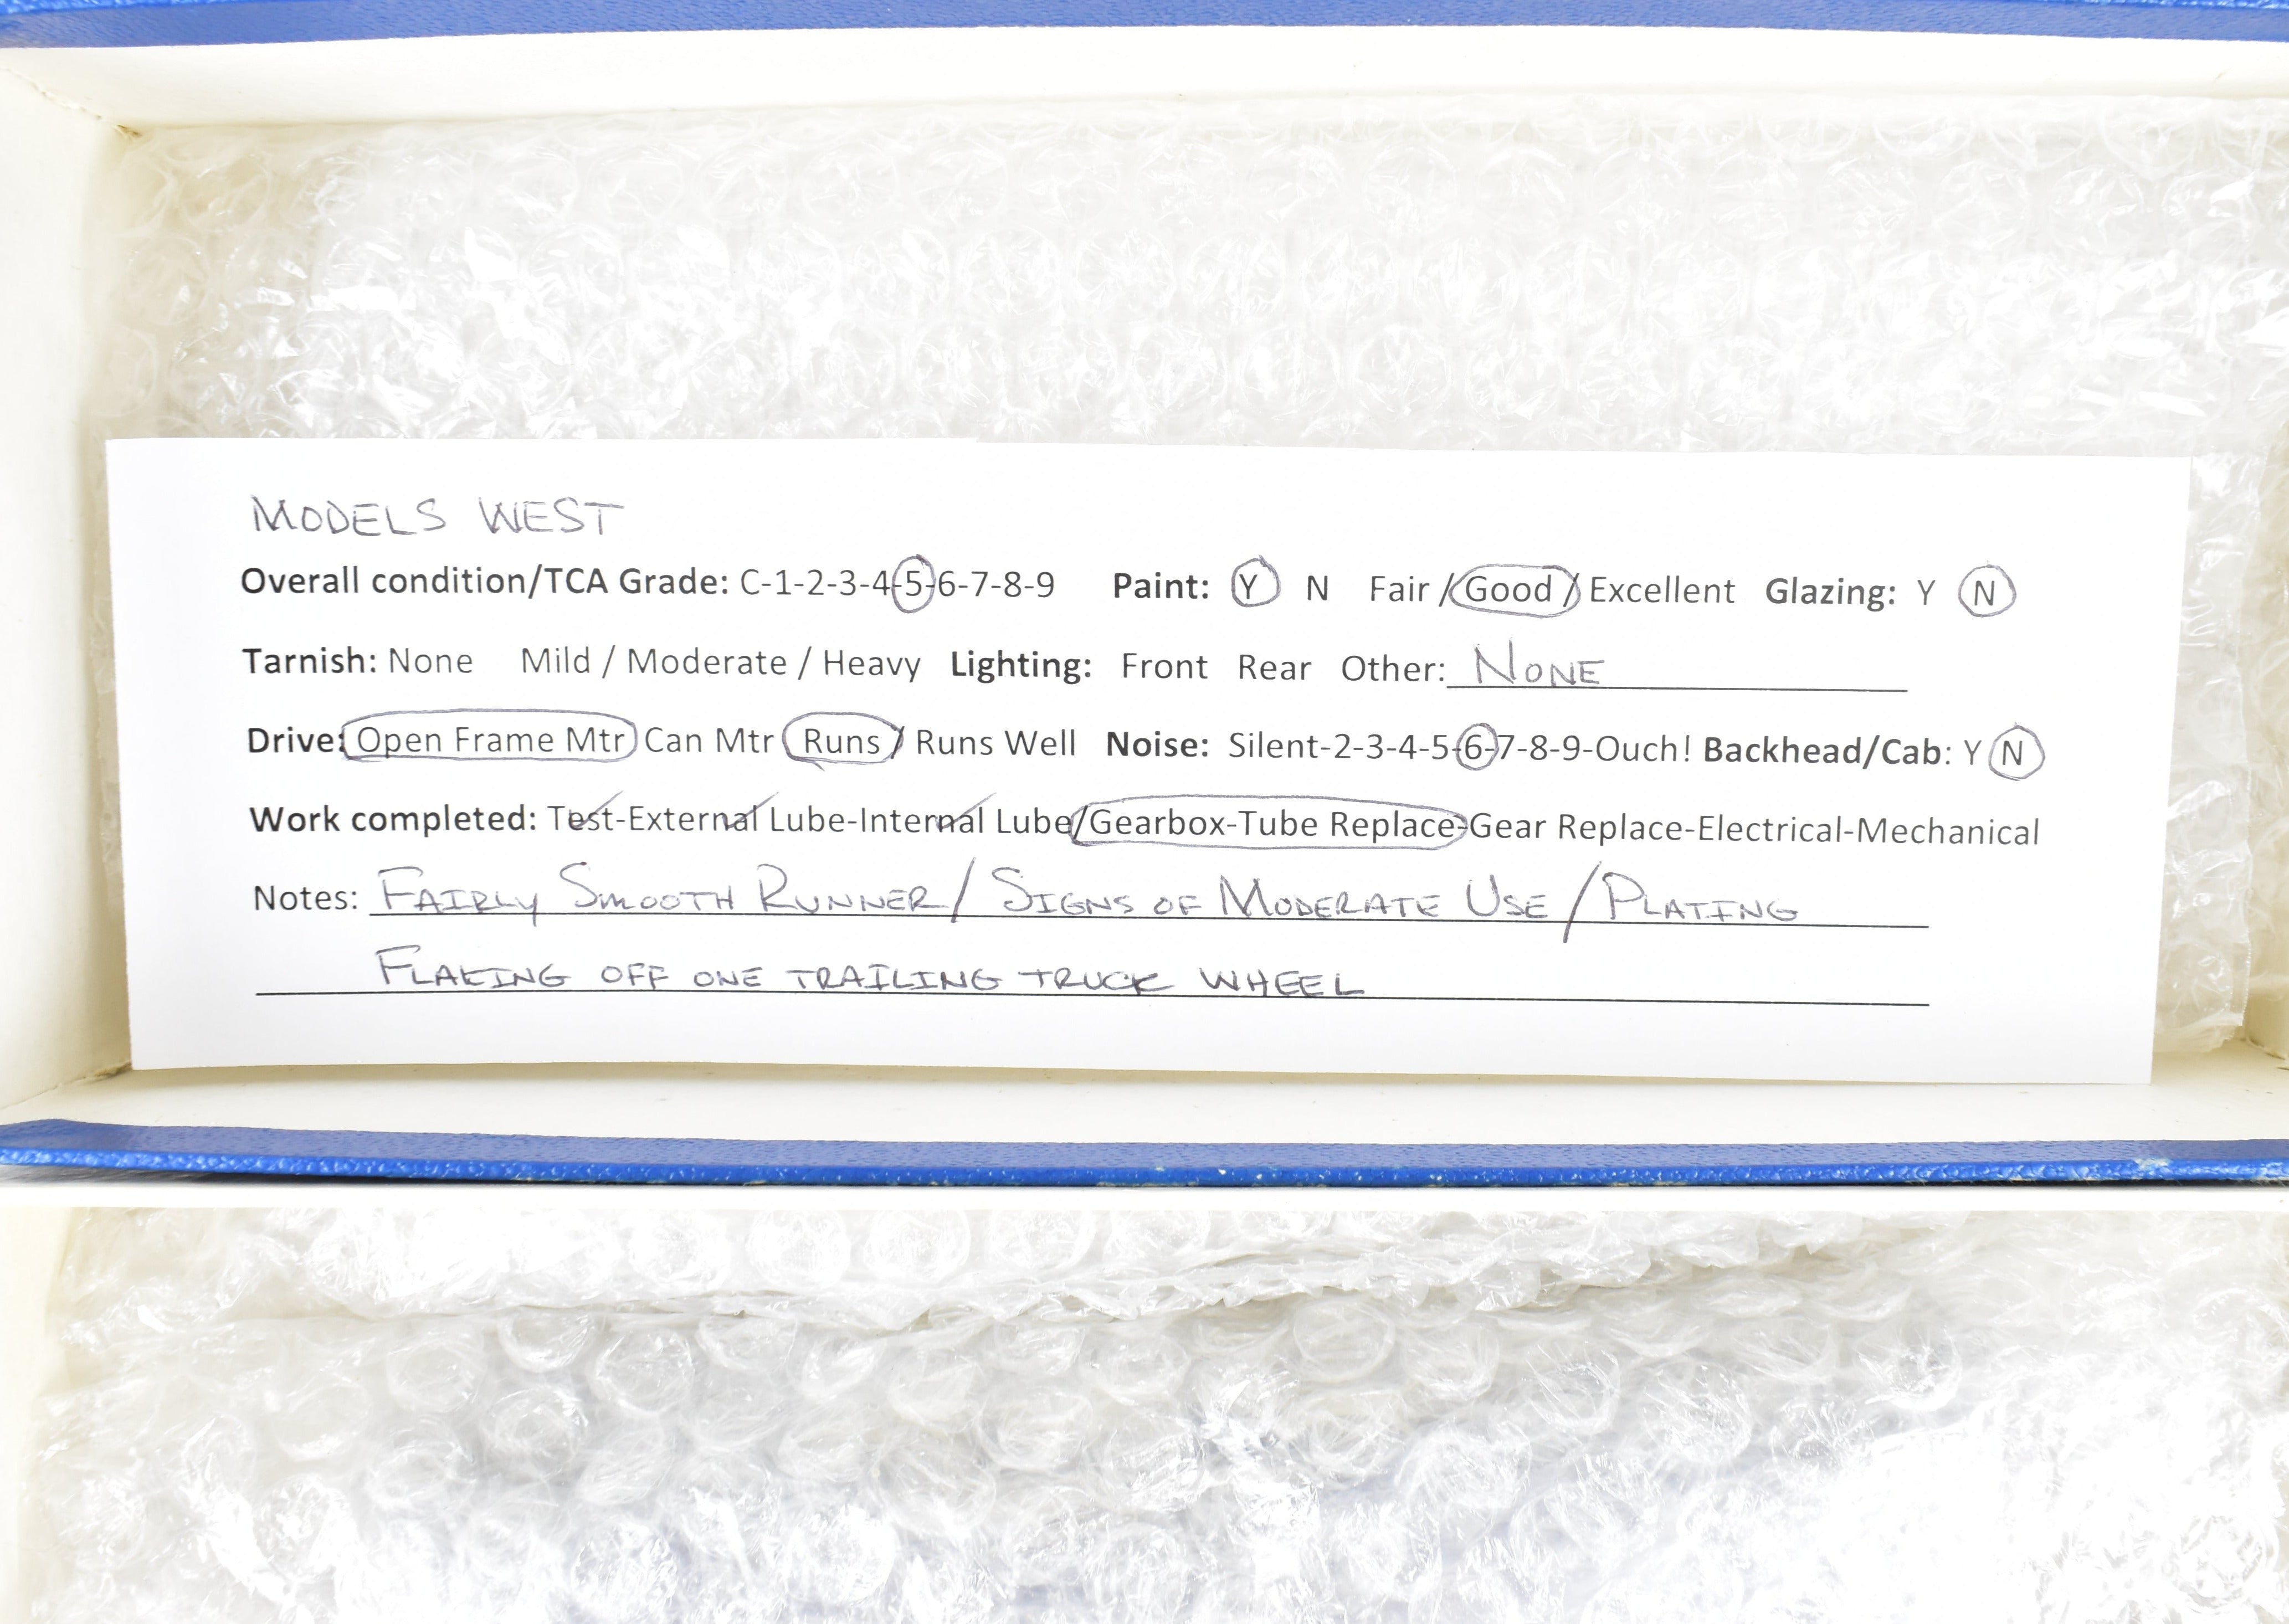 MODELS WEST
Overall condition/TCA Grade: C-1-2-3-4-5-6-7-8-9 Paint: Y N Fair / Good / Excellent Glazing: Y N
Tarnish: None Mild / Moderate / Heavy Lighting: Front Rear Other: NONE
Drive: Open Frame Mtr Can Mtr Runs / Runs Well Noise: Silent-2-3-4-5-6-7-8-9-Ouch! Backhead/Cab: Y N
Work completed: Test-External Lube-Internal Lube/Gearbox-Tube Replace-Gear Replace-Electrical-Mechanical
Notes: FAIRLY SMOOTH RUNNER / SIGNS OF MODERATE USE / PLATING
FLAKING OFF ONE TRAILING TRUCK WHEEL